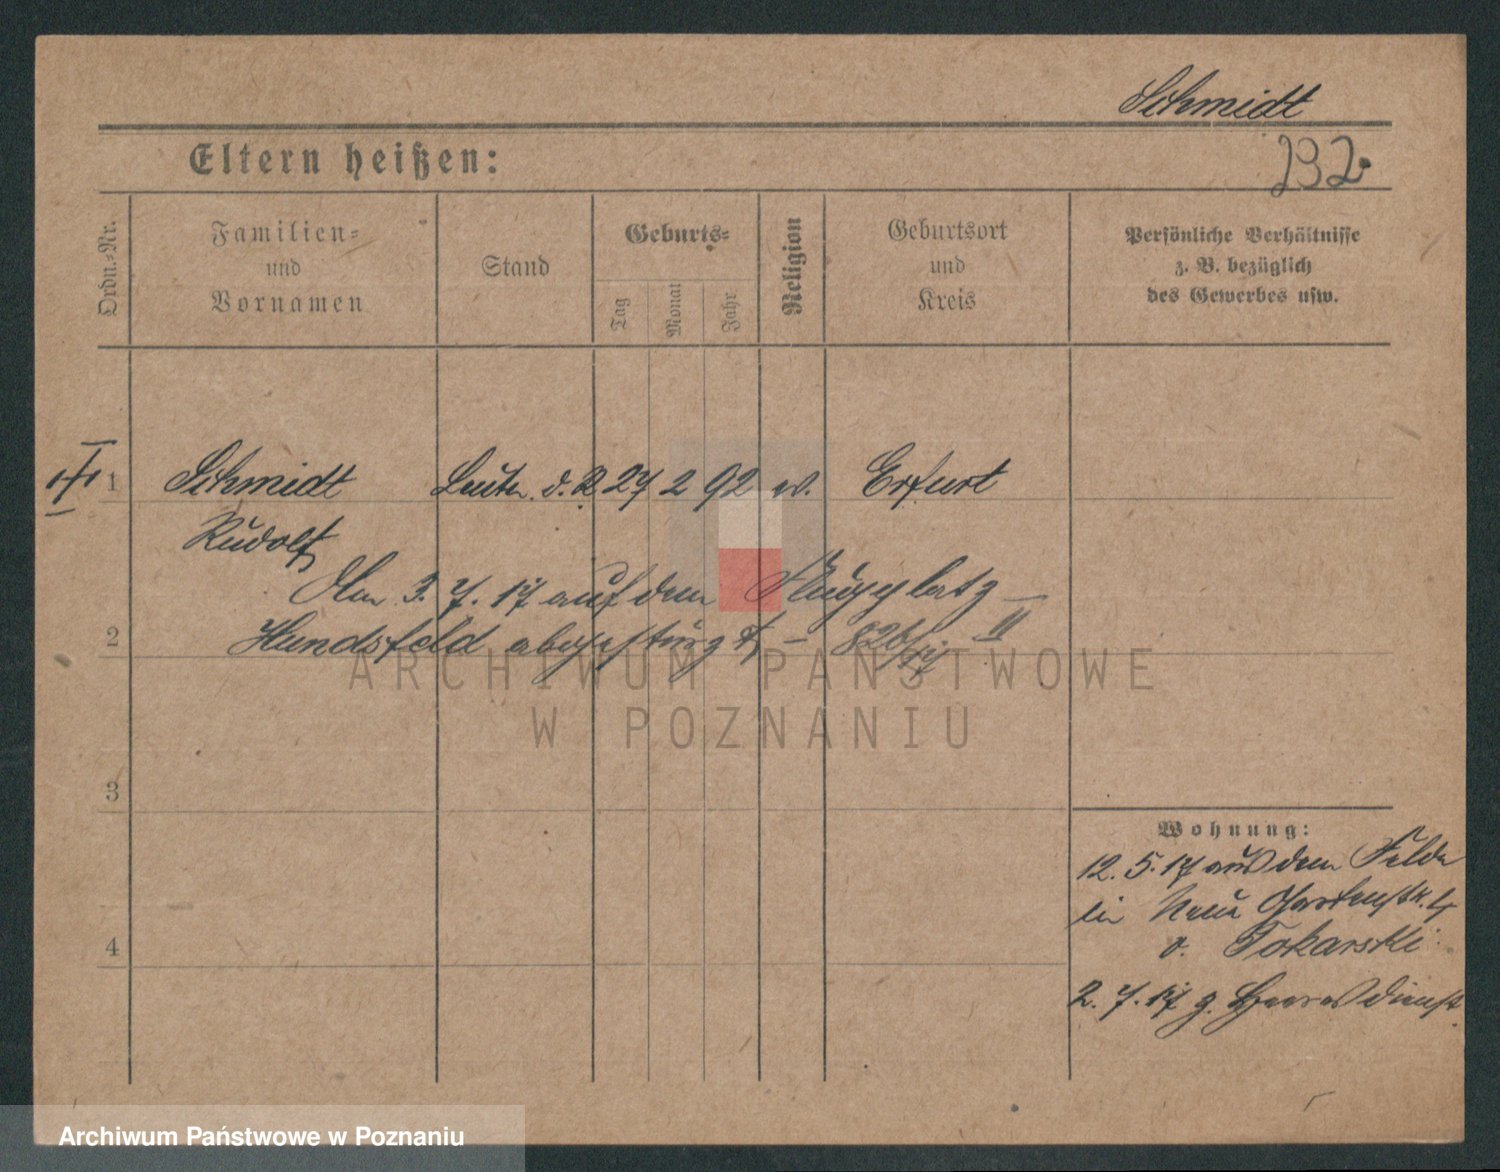 Schmidt
Eltern heißen:
232.
Ordn.-Nr.
Familien-
und
Vornamen
Stand
Geburts-
Tag
Monat
Jahr
Religion
Geburtsort
und
Kreis
Persönliche Verhältnisse
z. B. bezüglich
des Gewerbes usw.
1 Schmidt Leutn. d. R. 27 2 92 ev. Erfurt
Rudolf
Am 3. 7. 17 auf dem Flugplatz
2 Hundsfeld abgestürzt, - 826/17 II
ARCHIWUM PAŃSTWOWE
W POZNANIU
3
4
Wohnung:
12. 5. 17 aus dem Felde
in Neue Gartenstr. 4
b. Tokarski
2. 7. 17 z. Heeresdienst.
Archiwum Państwowe w Poznaniu